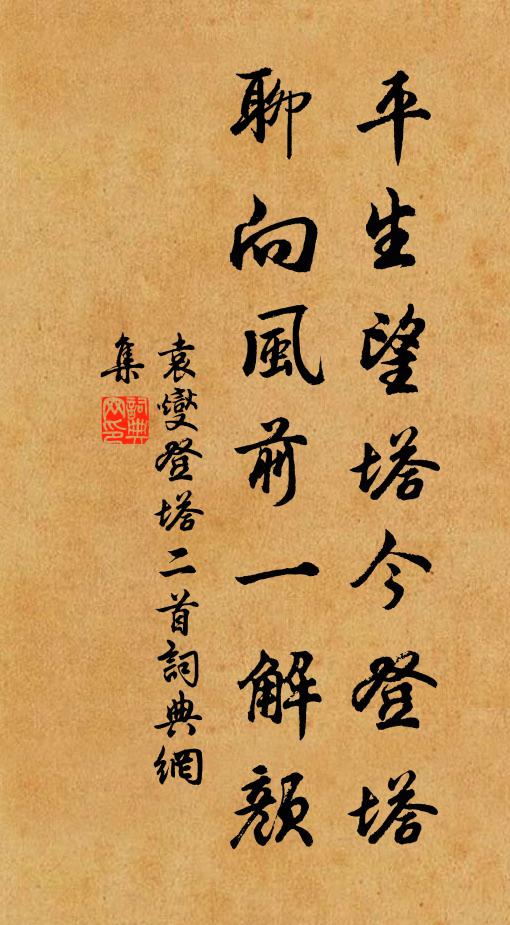 平生望塔今登塔
聊向風前一解顏
袁燮登塔二首詞典網
集
詞典網印